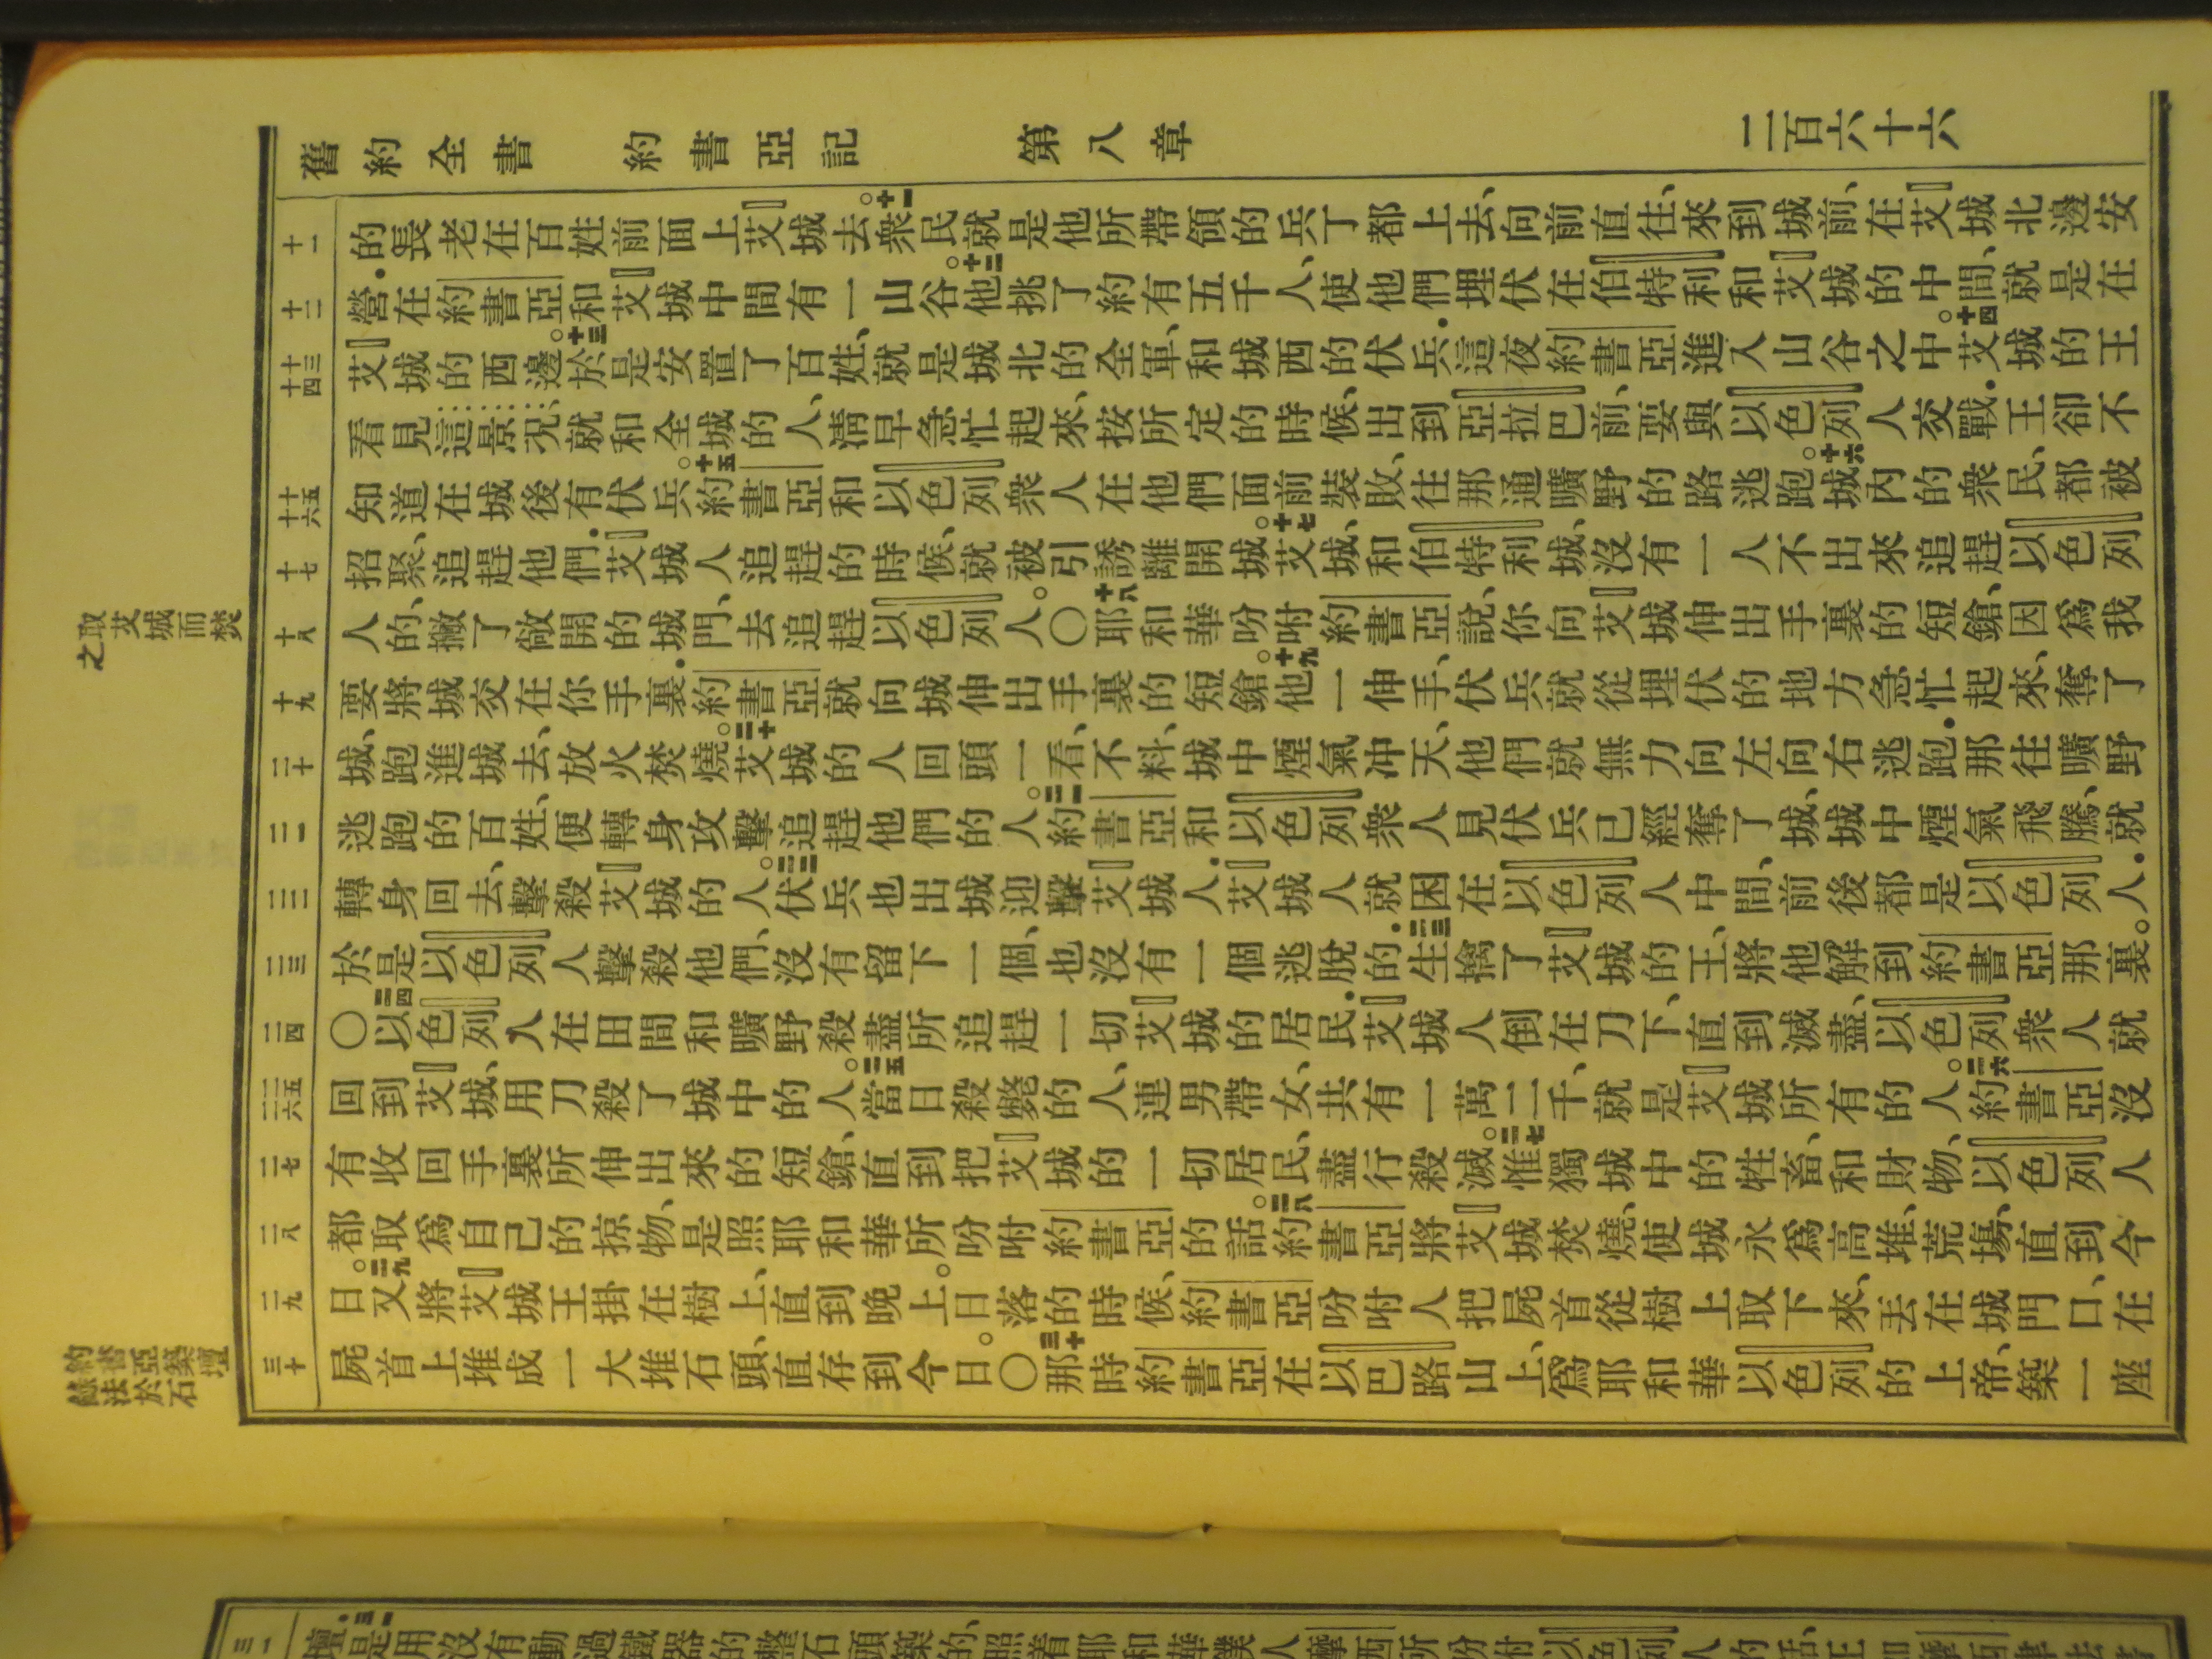 舊約全書 約書亞記 第八章 二百六十六
十一
的長老在百姓前面上艾城去。十一衆民就是他所帶領的兵丁都上去、向前直往、來到城前、在艾城北邊安
十二
營.在約書亞和艾城中間有一山谷。十二他挑了約有五千人、使他們埋伏在伯特利和艾城的中間、就是在
十三 十四
艾城的西邊。十三於是安置了百姓、就是城北的全軍、和城西的伏兵.這夜約書亞進入山谷之中。十四艾城的王
看見這景況、就和全城的人、淸早急忙起來、按所定的時候、出到亞拉巴前、要與以色列人交戰.王卻不
十五 十六
知道在城後有伏兵。十五約書亞和以色列衆人在他們面前裝敗、往那通曠野的路逃跑。十六城內的衆民、都被
十七
招聚、追趕他們.艾城人追趕的時候、就被引誘離開城。十七艾城、和伯特利城、沒有一人不出來追趕以色列
十八
人的、撇了敞開的城門、去追趕以色列人。〇十八耶和華吩咐約書亞說、你向艾城伸出手裏的短鎗、因爲我
十九
要將城交在你手裏.約書亞就向城伸出手裏的短鎗。十九他一伸手、伏兵就從埋伏的地方急忙起來、奪了
二十
城、跑進城去、放火焚燒。二十艾城的人回頭一看、不料、城中煙氣沖天、他們就無力向左向右逃跑.那往曠野
二一
逃跑的百姓、便轉身攻擊追趕他們的人。二一約書亞和以色列衆人見伏兵已經奪了城、城中煙氣飛騰、就
二二
轉身回去、擊殺艾城的人。二二伏兵也出城迎擊艾城人.艾城人就困在以色列人中間、前後都是以色列人.
二三
於是以色列人擊殺他們、沒有留下一個、也沒有一個逃脫的.二三生擒了艾城的王、將他解到約書亞那裏。
二四
〇二四以色列人在田間和曠野殺盡所追趕一切艾城的居民.艾城人倒在刀下、直到滅盡、以色列衆人就
二五 二六
回到艾城、用刀殺了城中的人。二五當日殺斃的人、連男帶女、共有一萬二千、就是艾城所有的人。二六約書亞沒
二七
有收回手裏所伸出來的短鎗、直到把艾城的一切居民、盡行殺滅。二七惟獨城中的牲畜、和財物、以色列人
二八
都取爲自己的掠物、是照耶和華所吩咐約書亞的話。二八約書亞將艾城焚燒、使城永爲高堆、荒塲、直到今
二九
日。二九又將艾城王掛在樹上、直到晚上。日落的時候、約書亞吩咐人把屍首從樹上取下來、丟在城門口、在
三十
屍首上堆成一大堆石頭、直存到今日。〇三十那時約書亞在以巴路山上、爲耶和華以色列的上帝、築一座
取艾城而焚之
約書亞築壇
錄法於石
三一
壇.三一是用沒有動過鐵器的整石頭築的、照着耶和華僕人摩西所吩咐以色列人的話、正如摩西律法書